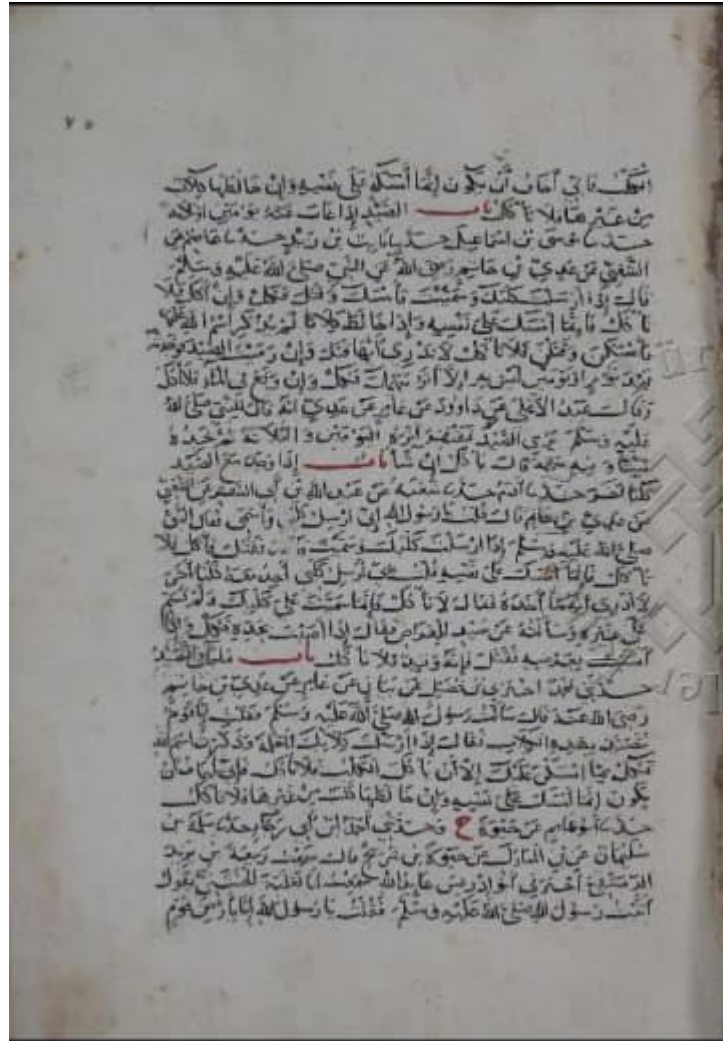 ٧٥
الكلب فاني أخاف أن يكون إنما أمسكه على نفسه وإن خالطها كلاب
من غيرها فلا تأكل باب الصيد إذا غاب عنه يومين أو ثلاثة
حدثنا موسى بن اسماعيل حدثنا ثابت بن يزيد حدثنا عاصم عن
الشعبي عن عدي بن حاتم رضي الله عن النبي صلى الله عليه وسلم
قال إذا أرسلت كلبك وسميت فأمسك وقتل فكل وإن أكل فلا
تأكل فإنما أمسك على نفسه وإذا خالط كلابا لم يذكر اسم الله عليها
فأمسكن وقتلن فلا تأكل فإنك لا تدري أيها قتل وإن رميت الصيد فوجدته
بعد يوم أو يومين ليس به إلا أثر سهمك فكل وإن وقع في الماء فلا تأكل
وقال عبد الأعلى عن داود عن عامر عن عدي انه قال للنبي صلى الله
عليه وسلم يرمي الصيد فيقتفر أثره اليومين والثلاثة ثم يجده
ميتا وفيه سهمه قال يأكل إن شاء باب إذا وجد مع الصيد
كلبا آخر حدثنا آدم حدثنا شعبة عن عبد الله بن أبي السفر عن الشعبي
عن عدي بن حاتم قال قلت يا رسول الله إني أرسل كلبي وأسمي فقال النبي
صلى الله عليه وسلم إذا أرسلت كلبك وسميت فأخذ فقتل فأكل فلا
تأكل فإنما أمسك على نفسه قلت إني أرسل كلبي أجد معه كلبا آخر
لا أدري أيهما أخذه فقال لا تأكل فإنما سميت على كلبك ولم تسم
على غيره وسألته عن صيد المعراض فقال إذا أصبت بحده فكل وإذا
أصبت بعرضه فقتل فإنه وقيذ فلا تأكل باب ما جاء في التصيد
حدثني محمد اخبرني بن فضيل عن بيان عن عامر عن عدي بن حاتم
رضي الله عنه قال سألت رسول الله صلى الله عليه وسلم فقلت إنا قوم
نتصيد بهذه الكلاب فقال إذا أرسلت كلابك المعلمة وذكرت اسم الله
فكل مما أمسكن عليك إلا أن يأكل الكلب فلا تأكل فإني أخاف أن
يكون إنما أمسك على نفسه وإن خالطها كلب من غيرها فلا تأكل
حدثنا أبو عاصم عن حيوة ح وحدثني أحمد ابن أبي رجاء حدثنا سلمة بن
سليمان عن بن المبارك عن حيوة بن شريح قال سمعت ربيعة بن يزيد
الدمشقي أخبرني أبو إدريس عائذ الله سمعت أبا ثعلبة الخشني يقول
أتيت رسول الله صلى الله عليه وسلم فقلت يا رسول الله إنا بأرض قوم